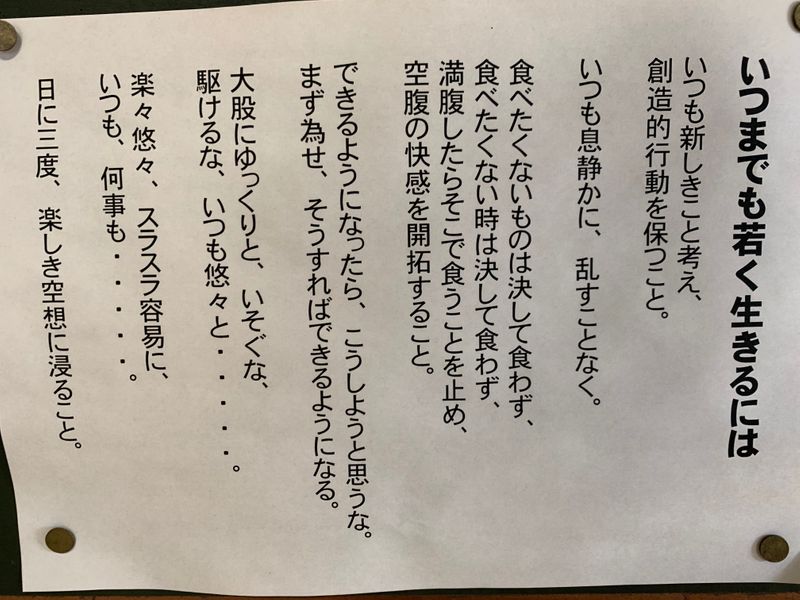 いつまでも若く生きるには
いつも新しきこと考え、
創造的行動を保つこと。
いつも息静かに、乱すことなく。
食べたくないものは決して食わず、
食べたくない時は決して食わず、
満腹したらそこで食うことを止め、
空腹の快感を開拓すること。
できるようになったら、こうしようと思うな。
まず為せ、そうすればできるようになる。
大股にゆっくりと、いそぐな、
駆けるな、いつも悠々と・・・・・。
楽々悠々、スラスラ容易に、
いつも、何事も・・・・・。
日に三度、楽しき空想に浸ること。